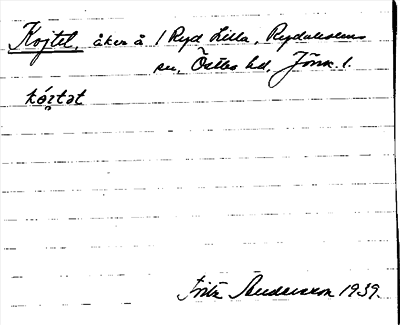 Kojtel, åker å 1 Ryd Lilla, Rydaholms
sn, Östbo hd, Jönk. l.
kóztət
Fritz Andersson 1939.